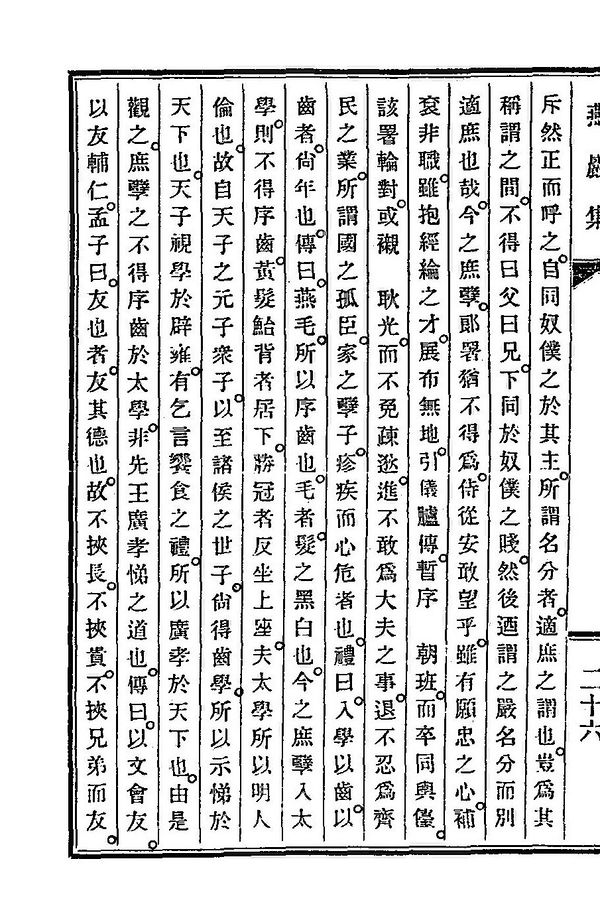 燕巖集
二十六
斥然正而呼之。自同奴僕之於其主。所謂名分者。適庶之謂也。豈爲其
稱謂之間。不得曰父曰兄。下同於奴僕之賤。然後迺謂之嚴名分而別
適庶也哉。今之庶孼。郞署猶不得爲。侍從安敢望乎。雖有願忠之心。補
袞非職。雖抱經綸之才。展布無地。引儀臚傳。暫序 朝班。而卒同輿儓。
該署輪對。或襯 耿光。而不免疎逖。進不敢爲大夫之事。退不忍爲齊
民之業。所謂國之孤臣。家之孼子。疹疾而心危者也。禮曰。入學以齒。以
齒者。尙年也。傳曰。燕毛。所以序齒也。毛者。髮之黑白也。今之庶孼入太
學。則不得序齒。黃髮鮐背者居下。勝冠者反坐上座。夫太學所以明人
倫也。故自天子之元子衆子。以至諸侯之世子。尙得齒學。所以示悌於
天下也。天子視學於辟雍。有乞言饗食之禮。所以廣孝於天下也。由是
觀之。庶孼之不得序齒於太學。非先王廣孝悌之道也。傳曰。以文會友。
以友輔仁。孟子曰。友也者。友其德也。故不挾長。不挾貴。不挾兄弟而友。